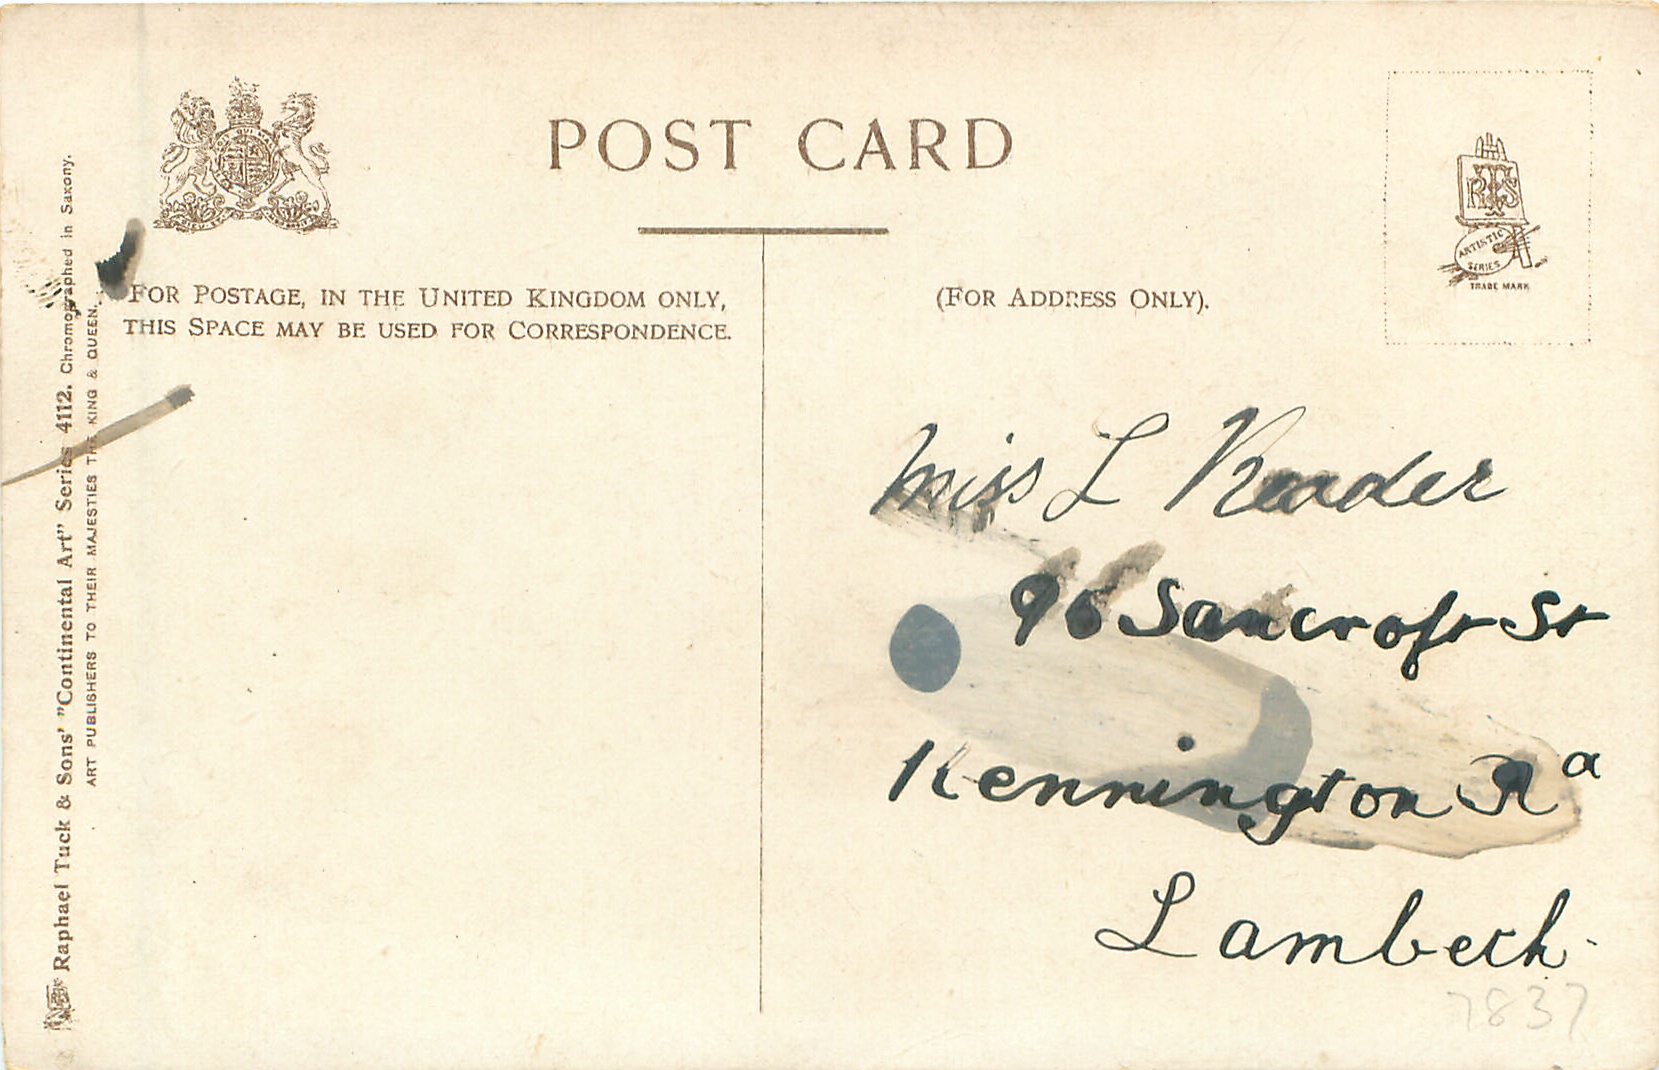 POST CARD
FOR POSTAGE, IN THE UNITED KINGDOM ONLY,
THIS SPACE MAY BE USED FOR CORRESPONDENCE.
(FOR ADDRESS ONLY).
RTS
ARTISTIC
SERIES
TRADE MARK
Miss L Reader
96 Sancroft St
Kennington Rd
Lambeth
7837
Raphael Tuck & Sons' "Continental Art" Series 4112. Chromographed in Saxony.
ART PUBLISHERS TO THEIR MAJESTIES THE KING & QUEEN.